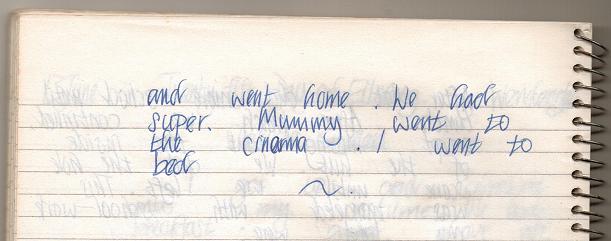 and went home . We had
super. Mummy went to
the cinanma . I went to
bed